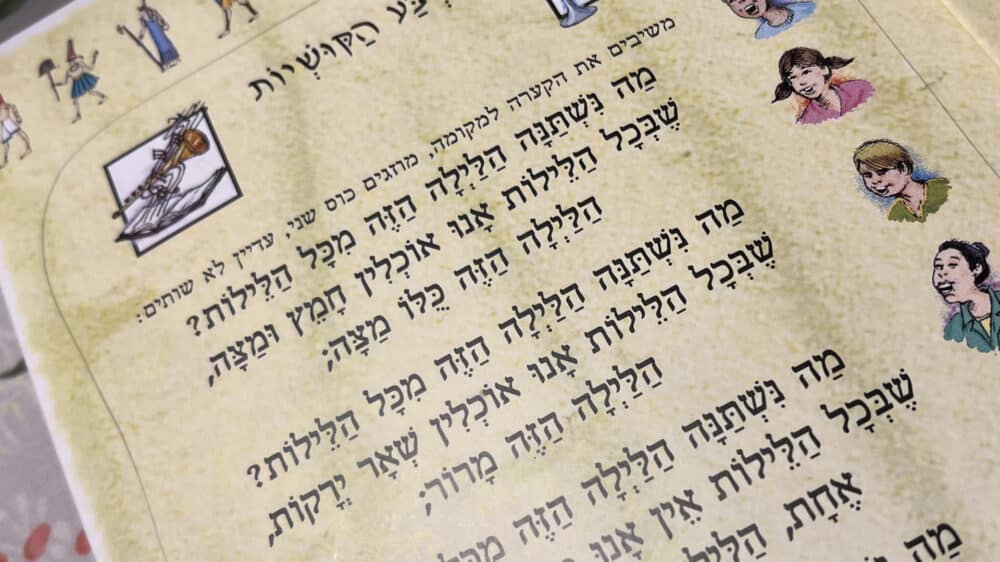 הַקֻּוּשְׁיוֹת
משיבים את הקערה למקומה, מוזגים כוס שני, עדיין לא שותים:
מַה נִּשְׁתַּנָּה הַלַּיְלָה הַזֶּה מִכָּל הַלֵּילוֹת?
שֶׁבְּכָל הַלֵּילוֹת אָנוּ אוֹכְלִין חָמֵץ וּמַצָּה,
הַלַּיְלָה הַזֶּה כֻּלּוֹ מַצָּה;
מַה נִּשְׁתַּנָּה הַלַּיְלָה הַזֶּה מִכָּל הַלֵּילוֹת?
שֶׁבְּכָל הַלֵּילוֹת אָנוּ אוֹכְלִין שְׁאָר יְרָקוֹת,
הַלַּיְלָה הַזֶּה מָרוֹר;
מַה נִּשְׁתַּנָּה הַלַּיְלָה הַזֶּה מִכָּל
שֶׁבְּכָל הַלֵּילוֹת אֵין אָנוּ
אֶחָת,
מַה